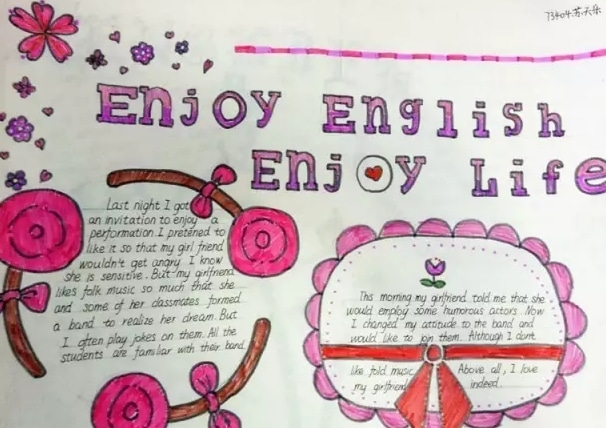 73404.苏天乐
Enjoy English
Enjoy Life
Last night I got
an invitation to enjoy a
performation. I pretened to
like it so that my girl friend
wouldn't get angry. I know
she is sensitive. But my girlfriend
likes folk music so much that she
and some of her classmates formed
a band to realize her dream. But
I often play jokes on them. All the
students are familiar with their band.
This morning my girlfriend told me that she
would employ some humorous actors. Now
I changed my attitude to the band and
would like to join them. Although I don't
like fold music, Above all, I love
my girlfriend indeed.